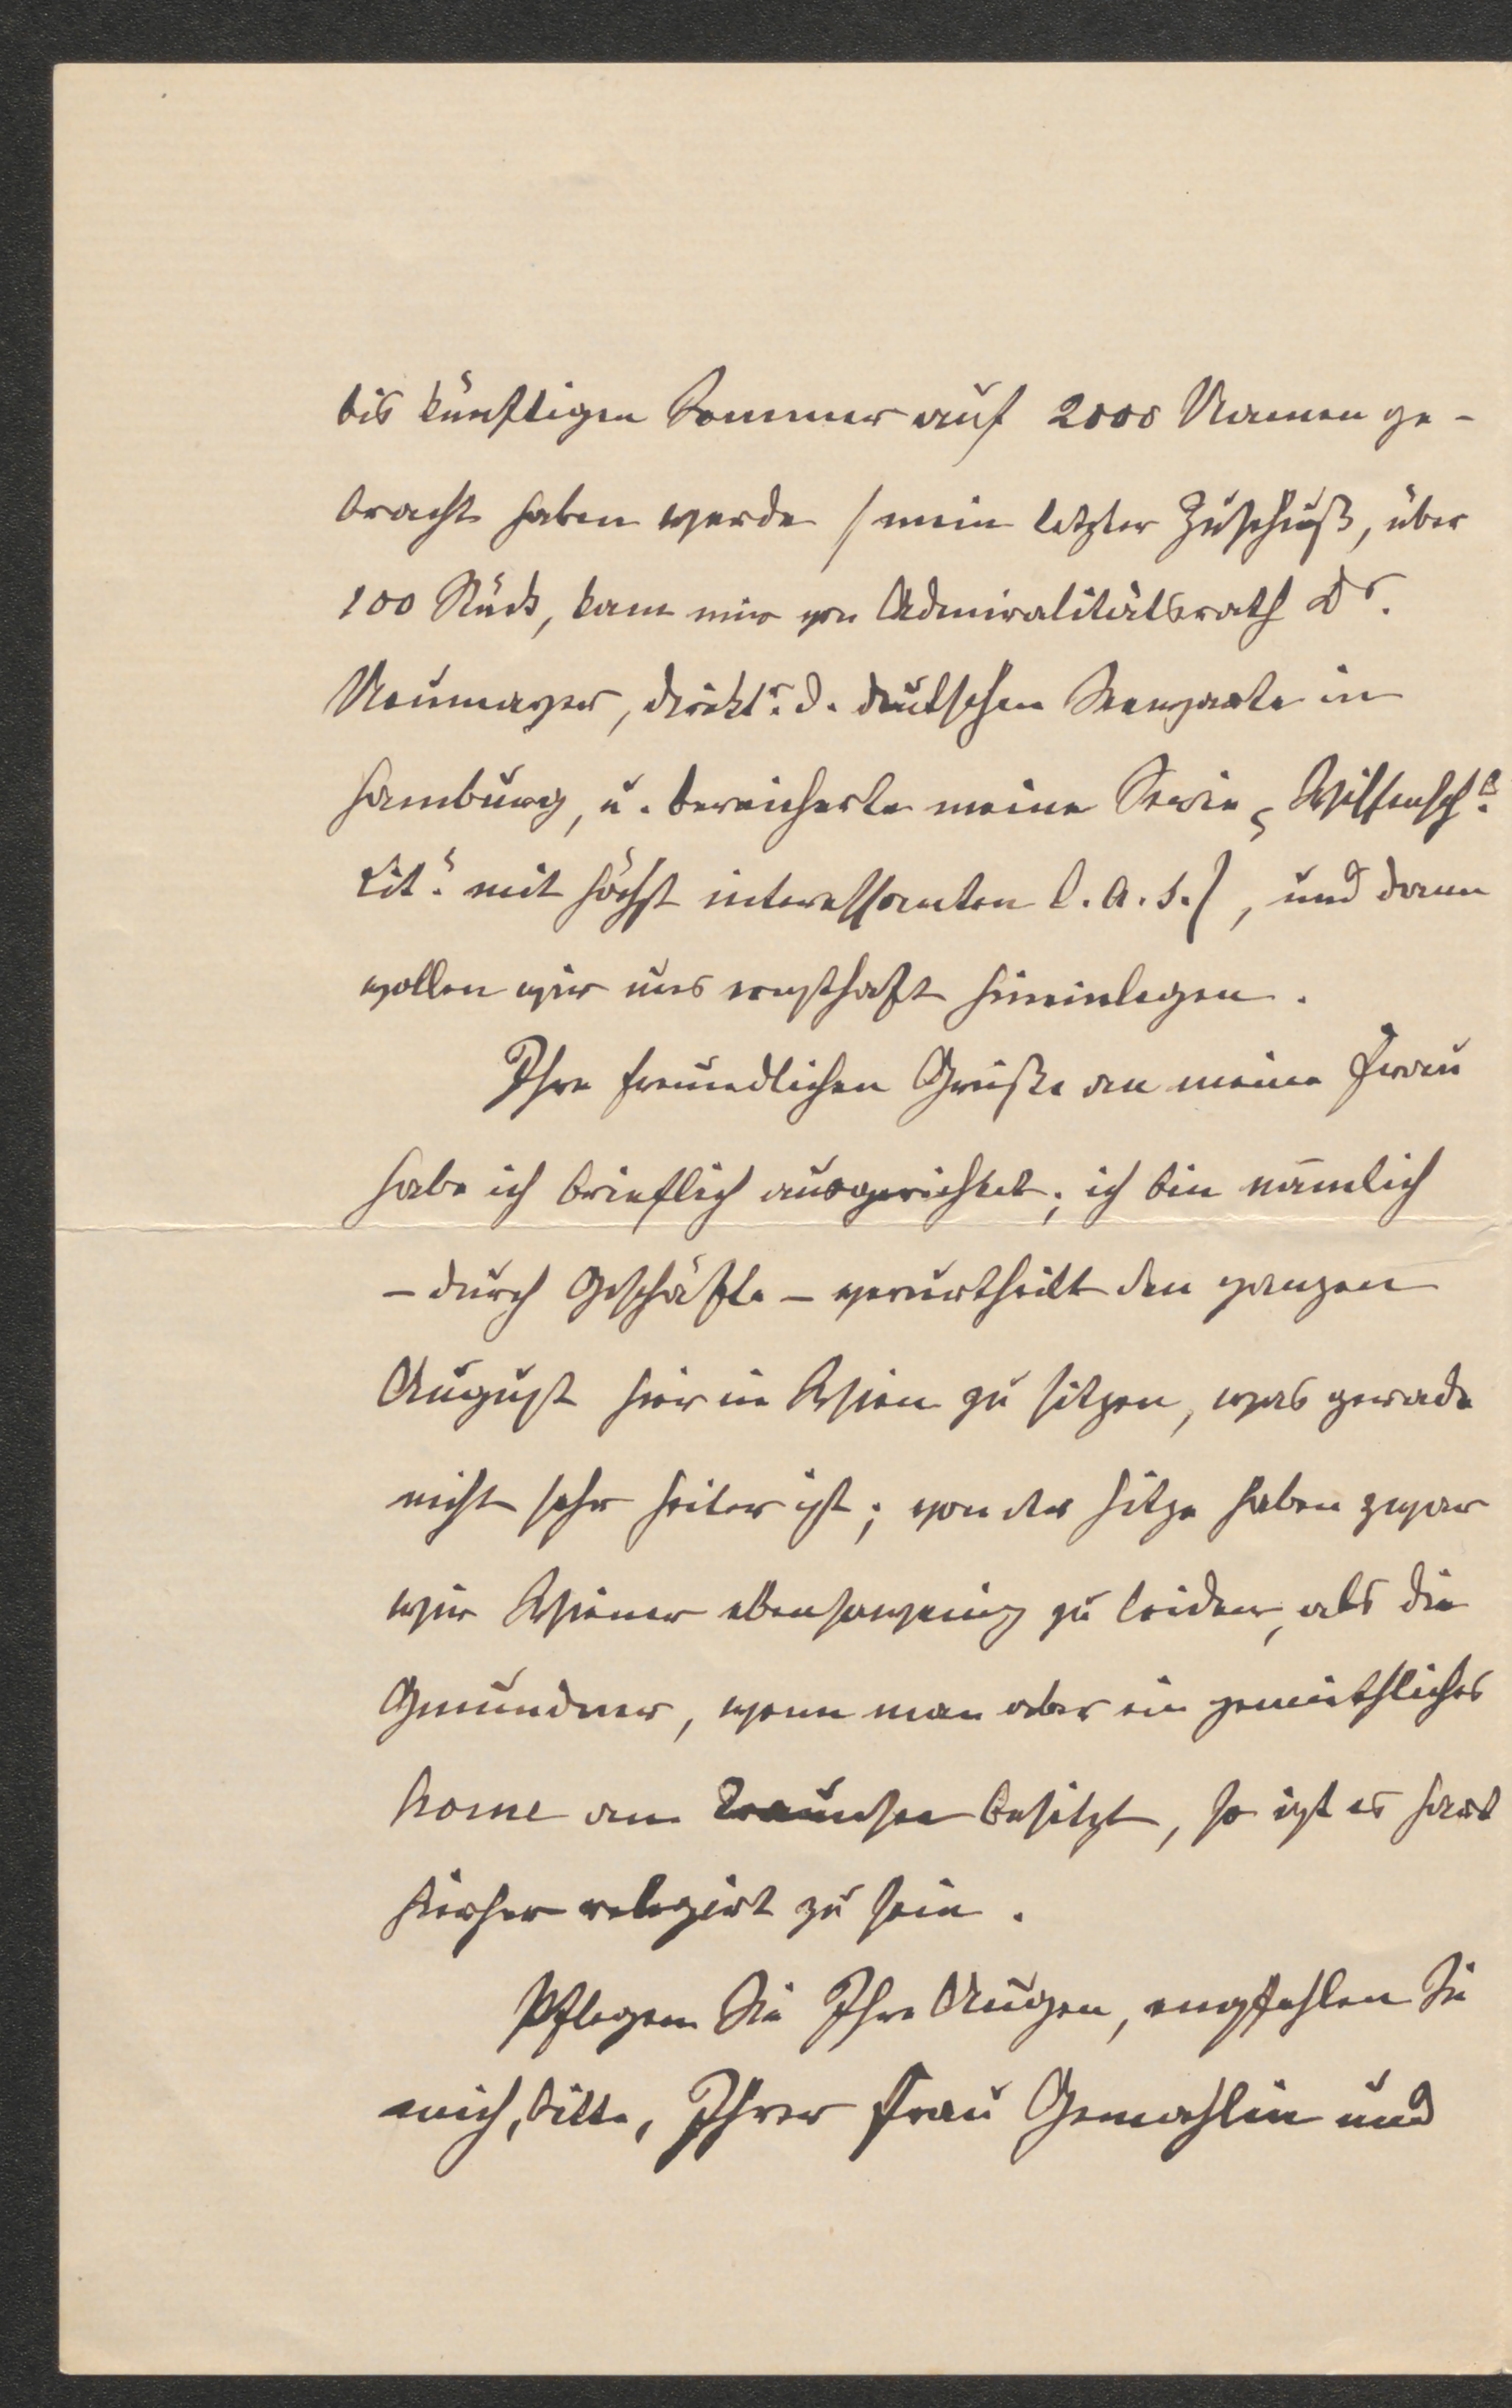 bis künftigen Sommer auf 2000 Namen ge-
bracht haben werde (mein letzter Zuschuß, über
100 Stück, kam mir von Admiralitätsrath Dr.
Neumayer, Direktr. d. deutschen Seewarte in
Hamburg, u. bereicherte meine Serie „Wissensch. &
Lit." mit höchst interessanten l. a. s.), und dann
wollen wir uns ernsthaft hineinlegen.
Ihre freundlichen Grüße an meine Frau
habe ich brieflich ausgerichtet; ich bin nämlich
– durch Geschäfte – verurtheilt den ganzen
August hier in Wien zu sitzen, was gerade
nicht sehr heiter ist; von der Hitze haben zwar
wir Wiener ebensowenig zu leiden, als die
Gmundner, wenn man aber ein gemüthliches
home am Traunsee besitzt, so ist es hart
hierher relegirt zu sein.
Pflegen Sie Ihre Augen, empfehlen Sie
mich, bitte, Ihrer Frau Gemahlin und